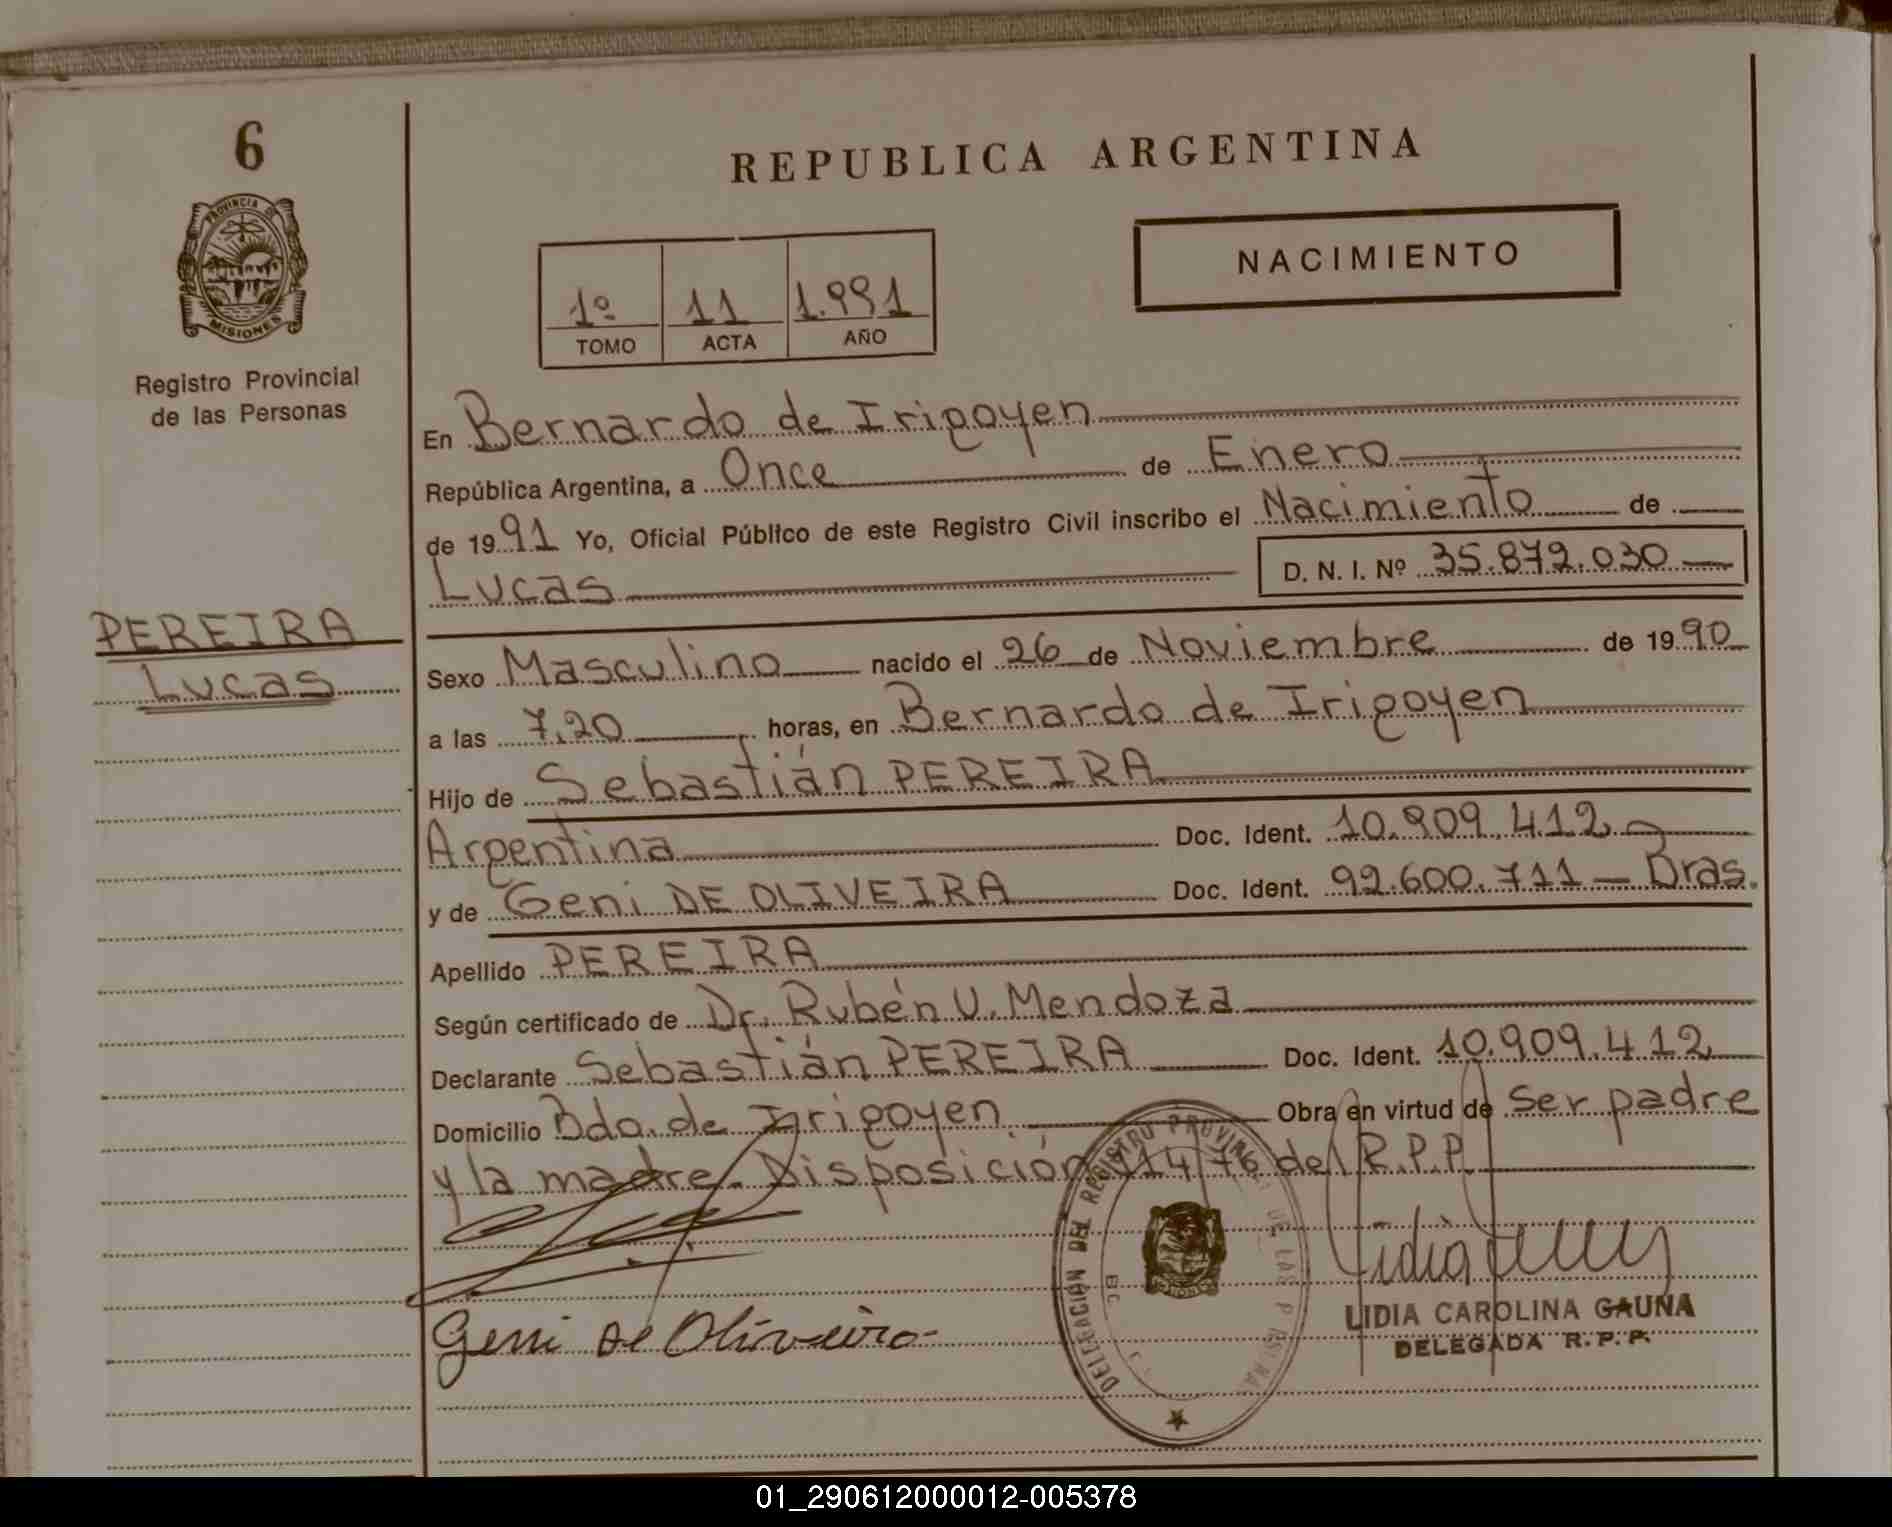 6
PROVINCIA DE
MISIONES
Registro Provincial
de las Personas
PEREIRA
Lucas
REPUBLICA ARGENTINA
1º 11 1.991
TOMO ACTA AÑO
NACIMIENTO
En Bernardo de Irigoyen
República Argentina, a Once de Enero
de 1991 Yo, Oficial Público de este Registro Civil inscribo el Nacimiento de
Lucas D. N. I. Nº 35.872.030
Sexo Masculino nacido el 26 de Noviembre de 1990
a las 7,20 horas, en Bernardo de Irigoyen
Hijo de Sebastián PEREIRA
Argentina Doc. Ident. 10.909.412
y de Geni DE OLIVEIRA Doc. Ident. 92.600.711 — Bras.
Apellido PEREIRA
Según certificado de Dr. Rubén U. Mendoza
Declarante Sebastián PEREIRA Doc. Ident. 10.909.412
Domicilio Bdo. de Irigoyen Obra en virtud de ser padre
y la madre. Disposición 114/76 del R.P.P.
DELEGACIÓN DEL REGISTRO PROVINCIAL DE LAS
Geni de Oliveira
Lidia
LIDIA CAROLINA GAUNA
DELEGADA R.P.P.
01_290612000012-005378